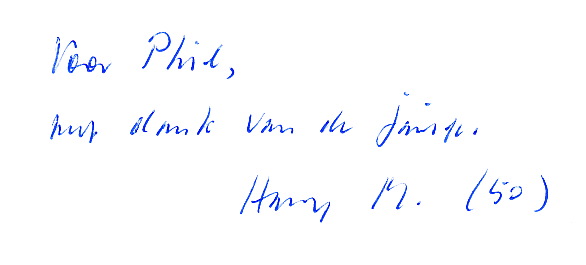 Voor Phil,
met dank van de
Harry M. (50)